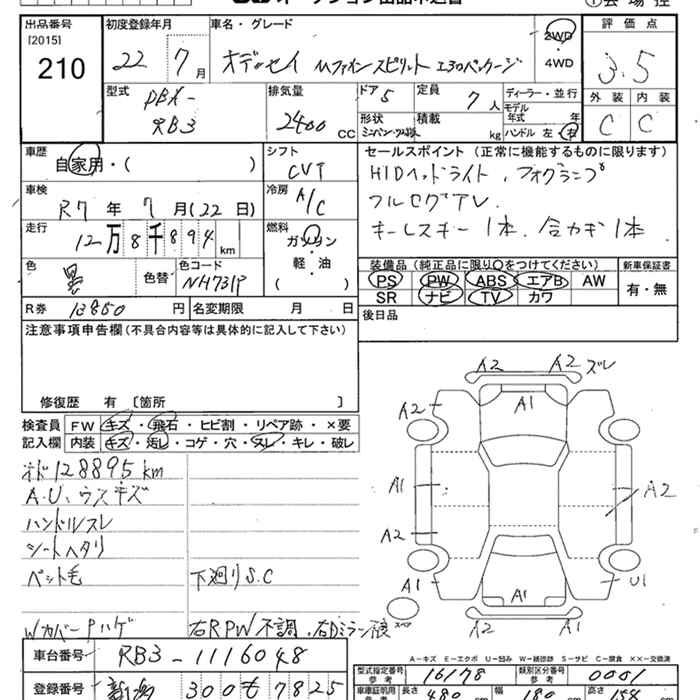 出品番号 [2015] 210
初度登録年月 22年 7月
車名・グレード オデッセイ Mファインスピリット エアロパッケージ
2WD・4WD
評価点 3.5
型式 DBA-RB3
排気量 2400 CC
ドア 5
形状 ミニバン・ワゴン
定員 7人
積載 kg
ディーラー・並行
モデル年式 年
ハンドル 左 右
外装 C 内装 C
車歴 自家用・( )
シフト CVT
車検 R7年 7月(22日)
冷房 A/C
走行 12万8千894km
燃料 ガソリン 軽・油 ( )
色 黒 色替 色コード NH731P
R券 12850円 名変期限 月 日
セールスポイント(正常に機能するものに限ります)
HIDヘッドライト、フォグランプ
フルセグTV.
キーレスキー1本. 合カギ1本.
装備品(純正品に限り○をつけてください)
PS PW ABS エアB AW
SR ナビ TV カワ
新車保証書 有・無
後日品
注意事項申告欄(不具合内容等は具体的に記入して下さい)
修復歴 有 〔箇所 〕
検査員記入欄
FW キズ・飛石・ヒビ割・リペア跡・×要
内装 キズ・汚し・コゲ・穴・スレ・キレ・破レ
オド128895km
A.U、ウスキズ
ハンドルスレ
シートヘタリ
ペット毛 下廻りS.C
Wカバー Pハゲ 右RPW不調、右Dミラー
A2 A2 ズレ
A2 A1
A1 A2
A2
A1 A1 U1
スペア A2 A1
車台番号 RB3-1116048
登録番号 新潟 300 も 7825
A-キズ E-エクボ U-凹み W-補修跡 S-サビ C-腐食 XX-交換済
型式指定番号 参考 16178 類別区分番号 参考 0001
車庫証明用 参考 長さ 480cm 幅 180cm 高さ 158cm